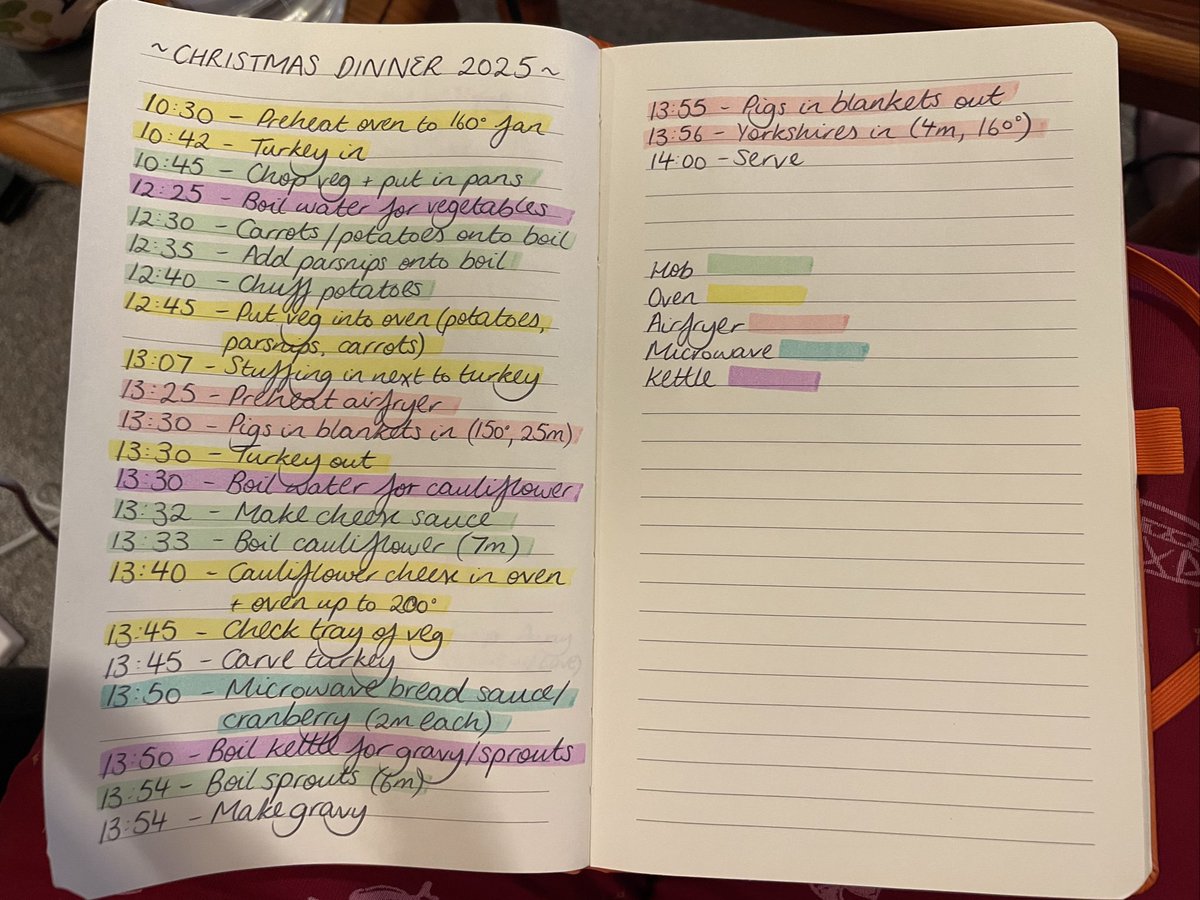 ~CHRISTMAS DINNER 2025~
10:30 - Preheat oven to 160° fan
10:42 - Turkey in
10:45 - Chop veg + put in pans
12:25 - Boil water for vegetables
12:30 - Carrots/potatoes onto boil
12:35 - Add parsnips onto boil
12:40 - Chuff potatoes
12:45 - Put veg into oven (potatoes,
parsnips, carrots)
13:07 - Stuffing in next to turkey
13:25 - Preheat airfryer
13:30 - Pigs in blankets in (150°, 25m)
13:30 - Turkey out
13:30 - Boil water for cauliflower
13:32 - Make cheese sauce
13:33 - Boil cauliflower (7m)
13:40 - Cauliflower cheese in oven
+ oven up to 200°
13:45 - Check tray of veg
13:45 - Carve turkey
13:50 - Microwave bread sauce/
cranberry (2m each)
13:50 - Boil kettle for gravy/sprouts
13:54 - Boil sprouts (6m)
13:54 - Make gravy
13:55 - Pigs in blankets out
13:56 - Yorkshires in (4m, 160°)
14:00 - Serve
Hob
Oven
Airfryer
Microwave
Kettle